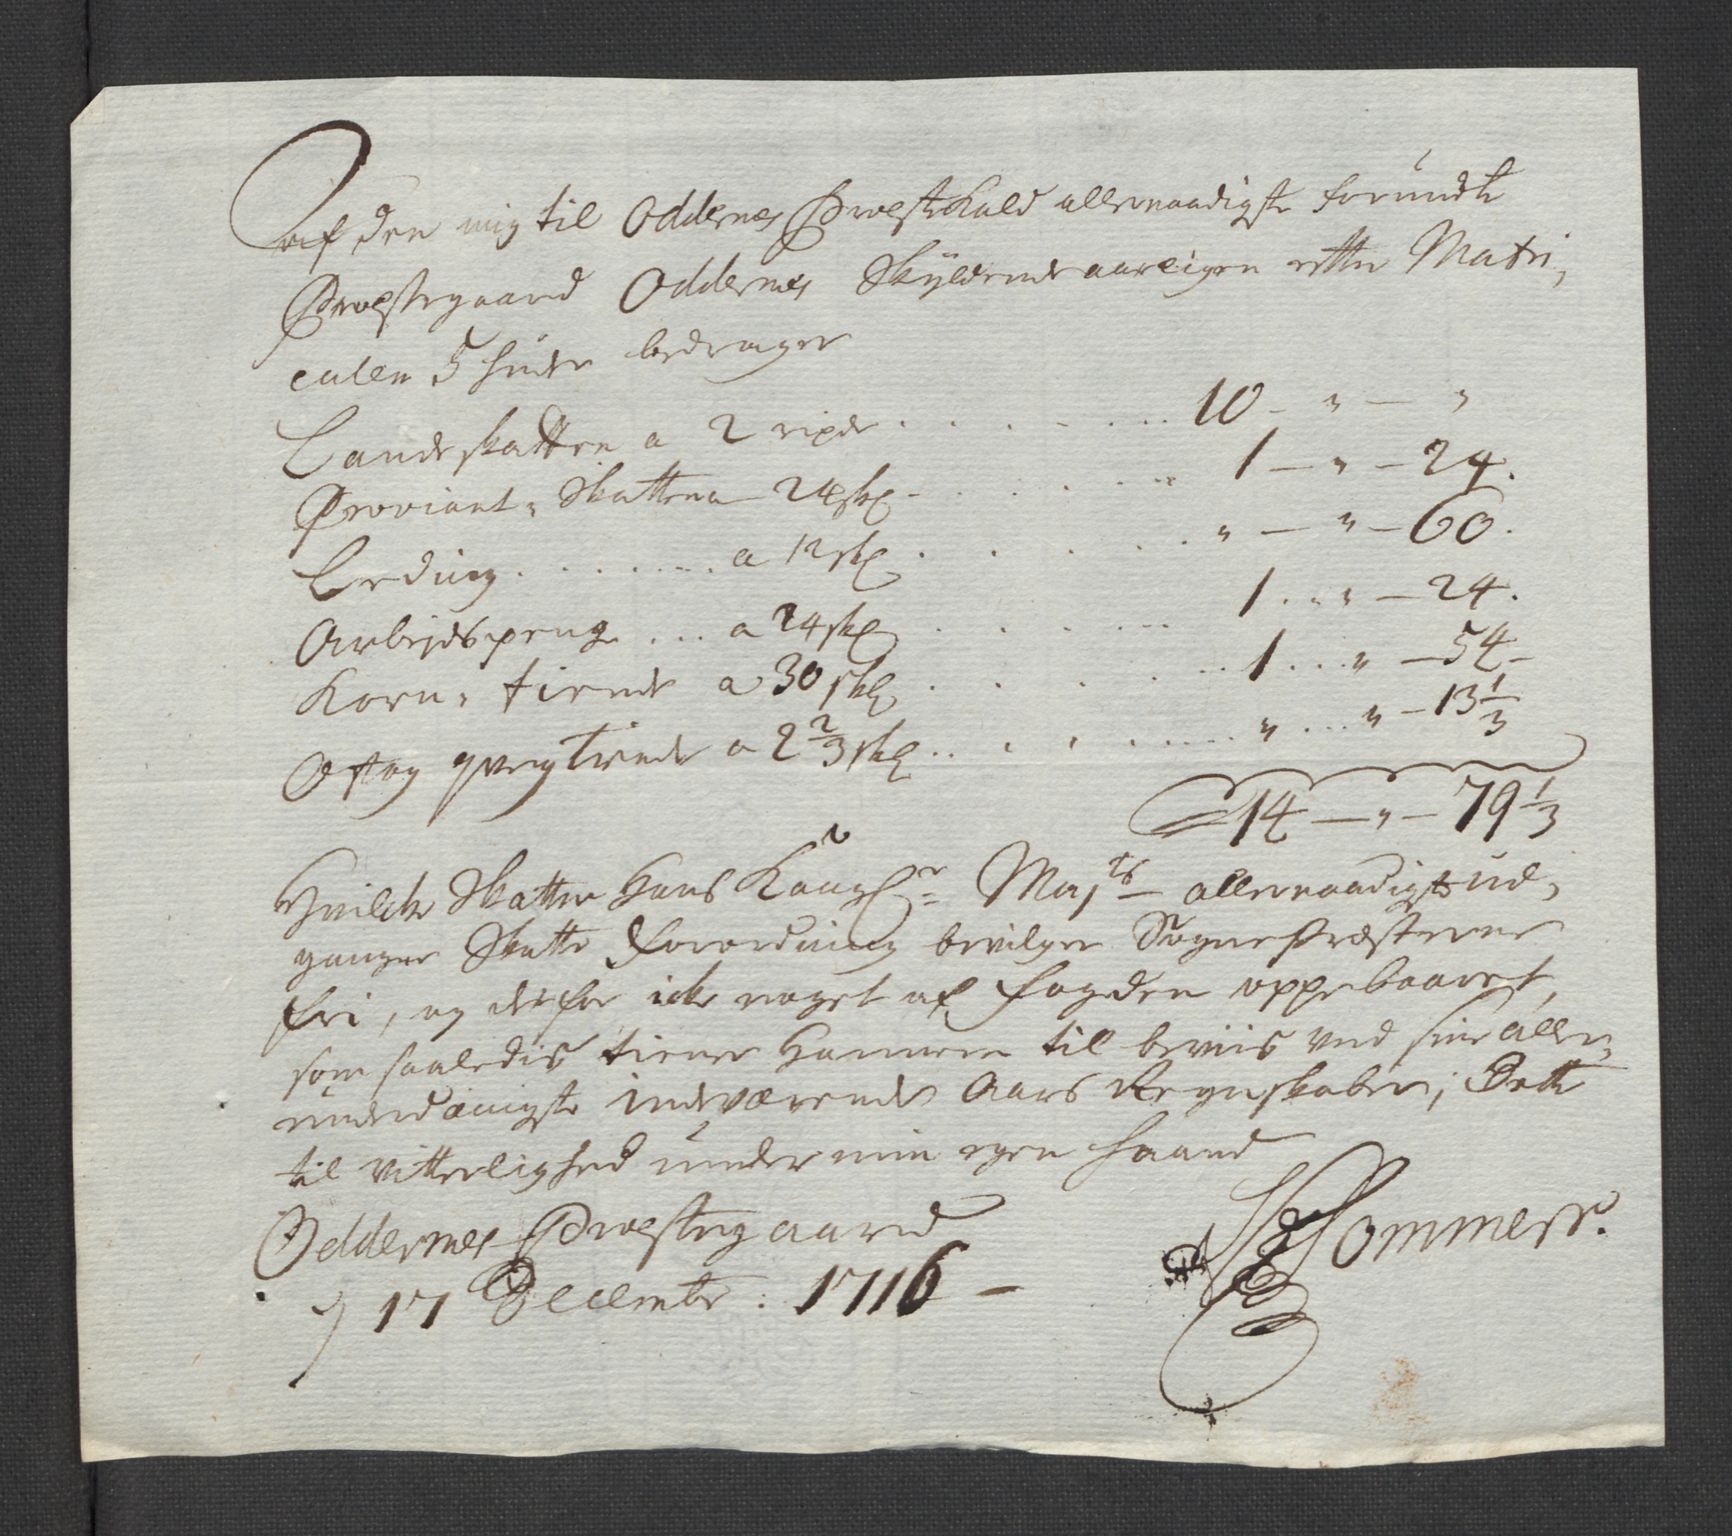 Af den mig til Oddernes Præstekald allernaadigste forundte
Præstegaard Oddernes Skyldende aarligen efter Matri,
culen 5 huder bedrager
Landskatten a 2 ripdr . . . . . . . 10 - " - "
Proviant, Skatten a 24skl - . . . . . . 1 - " - 24.
Leding . . . . . . . a 12skl . . . . . . " - " - 60.
Arbeidspeng ... a 24skl . . . . . . 1 ... " - 24.
Korn, tiende a 30skl . . . . . . 1 ... " - 54 -
Ost og qvegtiende a 2 2/3 skl . . . . . . " ... " - 13 1/3
14 - " - 79 1/3
Hvilche Skatter Hans Kongl: Majts allernaadigste ud,
gangne Skatte Forordning bevilger Sognepræsterne
fri, og derfor iche noget af fogden oppebaaret,
som saaledis tiener Hannem til beviis ved sine aller,
underdanigste indeværende Aars Regnskaber; Dette
til vitterlighed under min egen haand
Oddernes Præstegaard
d 17 Decembr : 1716 -
Sommerr.